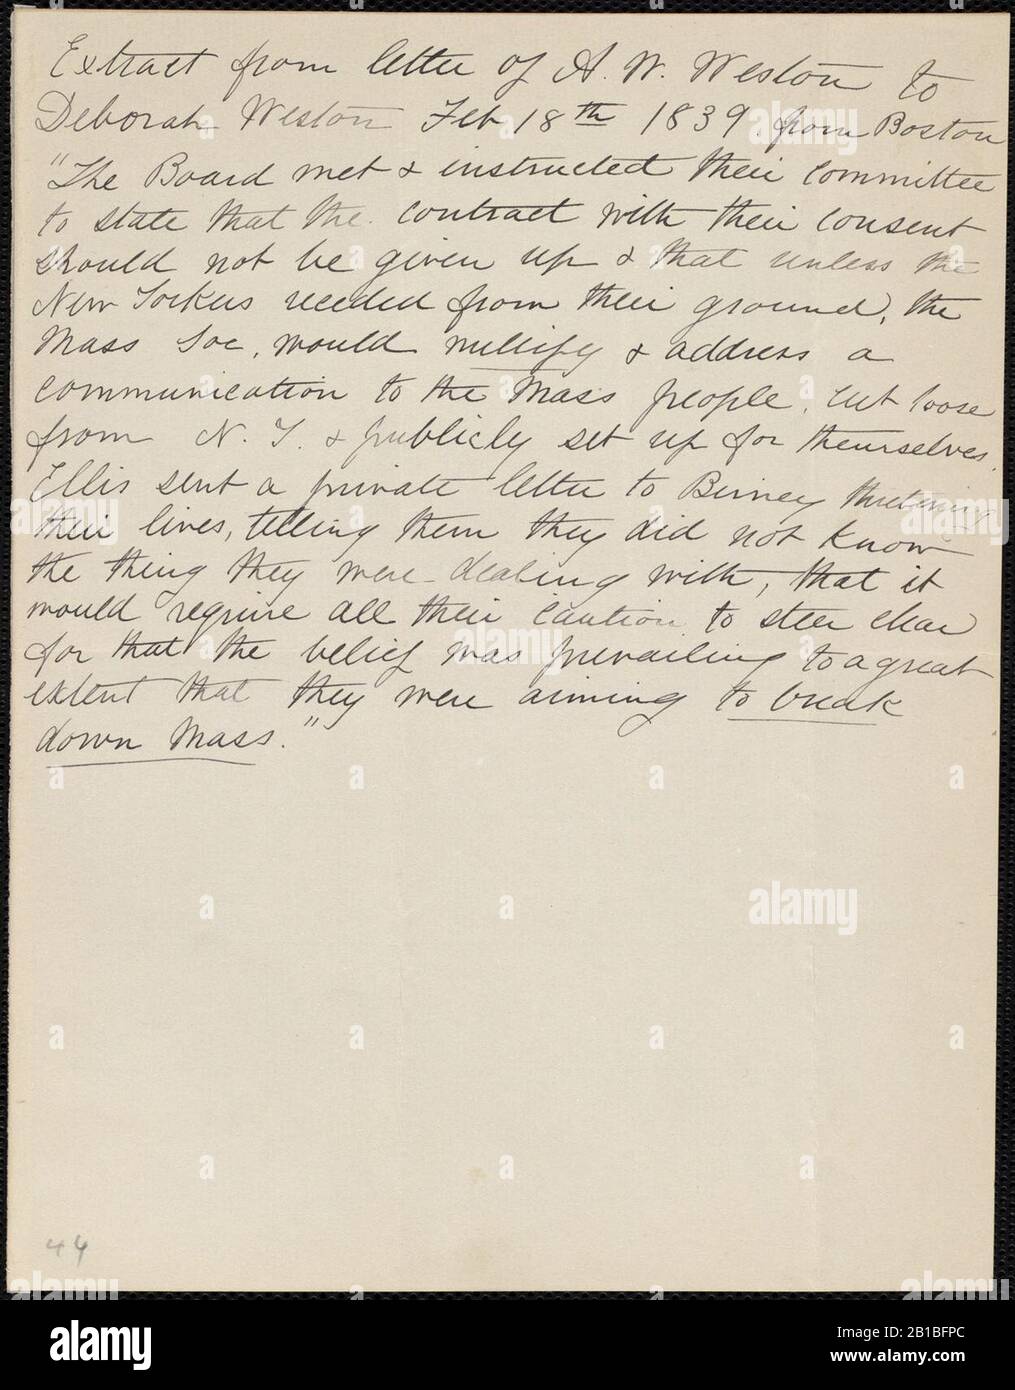 Extract from letter of A. W. Weston to
Deborah Weston Feb 18th 1839. from Boston
"The Board met & instructed their committee
to state that the contract with their consent
should not be given up & that unless the
New Yorkers receded from their ground, the
Mass Soc, would nullify & address a
communication to the Mass people, cut loose
from N. Y. & publicly set up for themselves.
Ellis sent a private letter to Birney
their lives, telling them they did not know
the thing they were dealing with, that it
would require all their caution to steer clear
for that the belief was prevailing to a great
extent that they were aiming to break
down Mass."
44
alamy
Image ID: 2B1BFPC
www.alamy.com